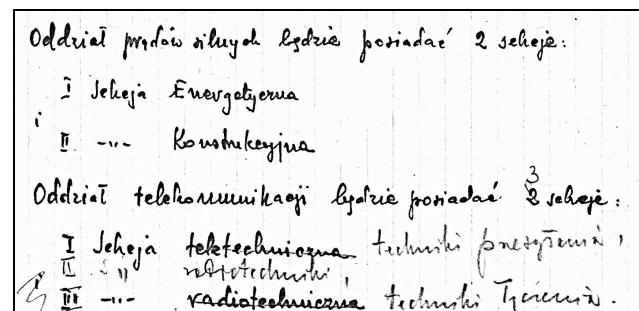 Oddział prądów silnych będzie posiadać 2 sekcje:
I Sekcja Energetyczna
i
II -"- Konstrukcyjna
Oddział telekomunikacji będzie posiadać 3 2 sekcje:
I Sekcja teletechniczna techniki przesyłania,
II " radiotechniki,
III -"- radiotechniczna techniki łączenia.